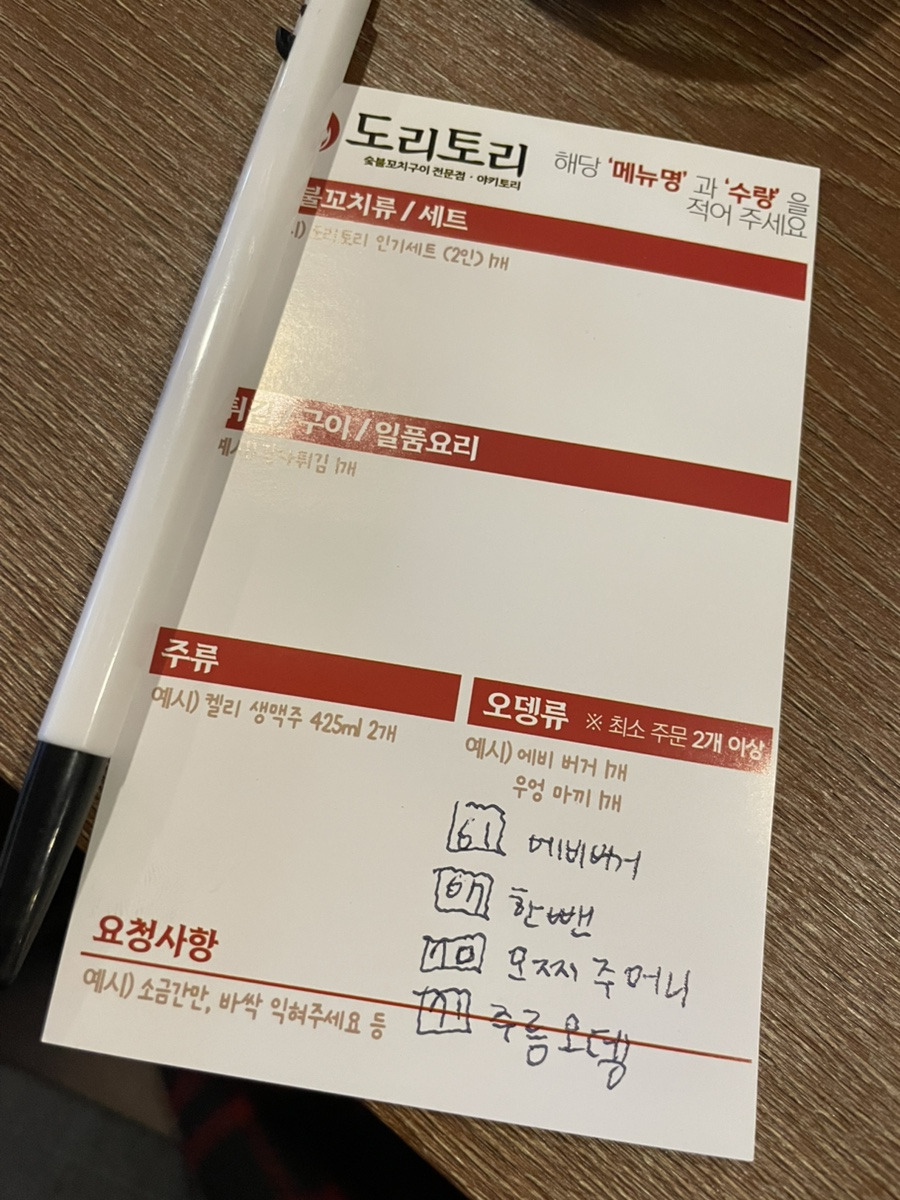 도리토리
숯불꼬치구이 전문점 · 야키토리
해당 '메뉴명' 과 '수량' 을
적어 주세요
불꼬치류 / 세트
도리토리 인기세트 (2인) 1개
구이 / 일품요리
튀김 1개
주류
예시) 켈리 생맥주 425ml 2개
오뎅류 ※ 최소 주문 2개 이상
예시) 에비 버거 1개
우엉 마끼 1개
61 에비버거
67 한뺀
70 모찌 주머니
71 주름오뎅
요청사항
예시) 소금간만, 바싹 익혀주세요 등